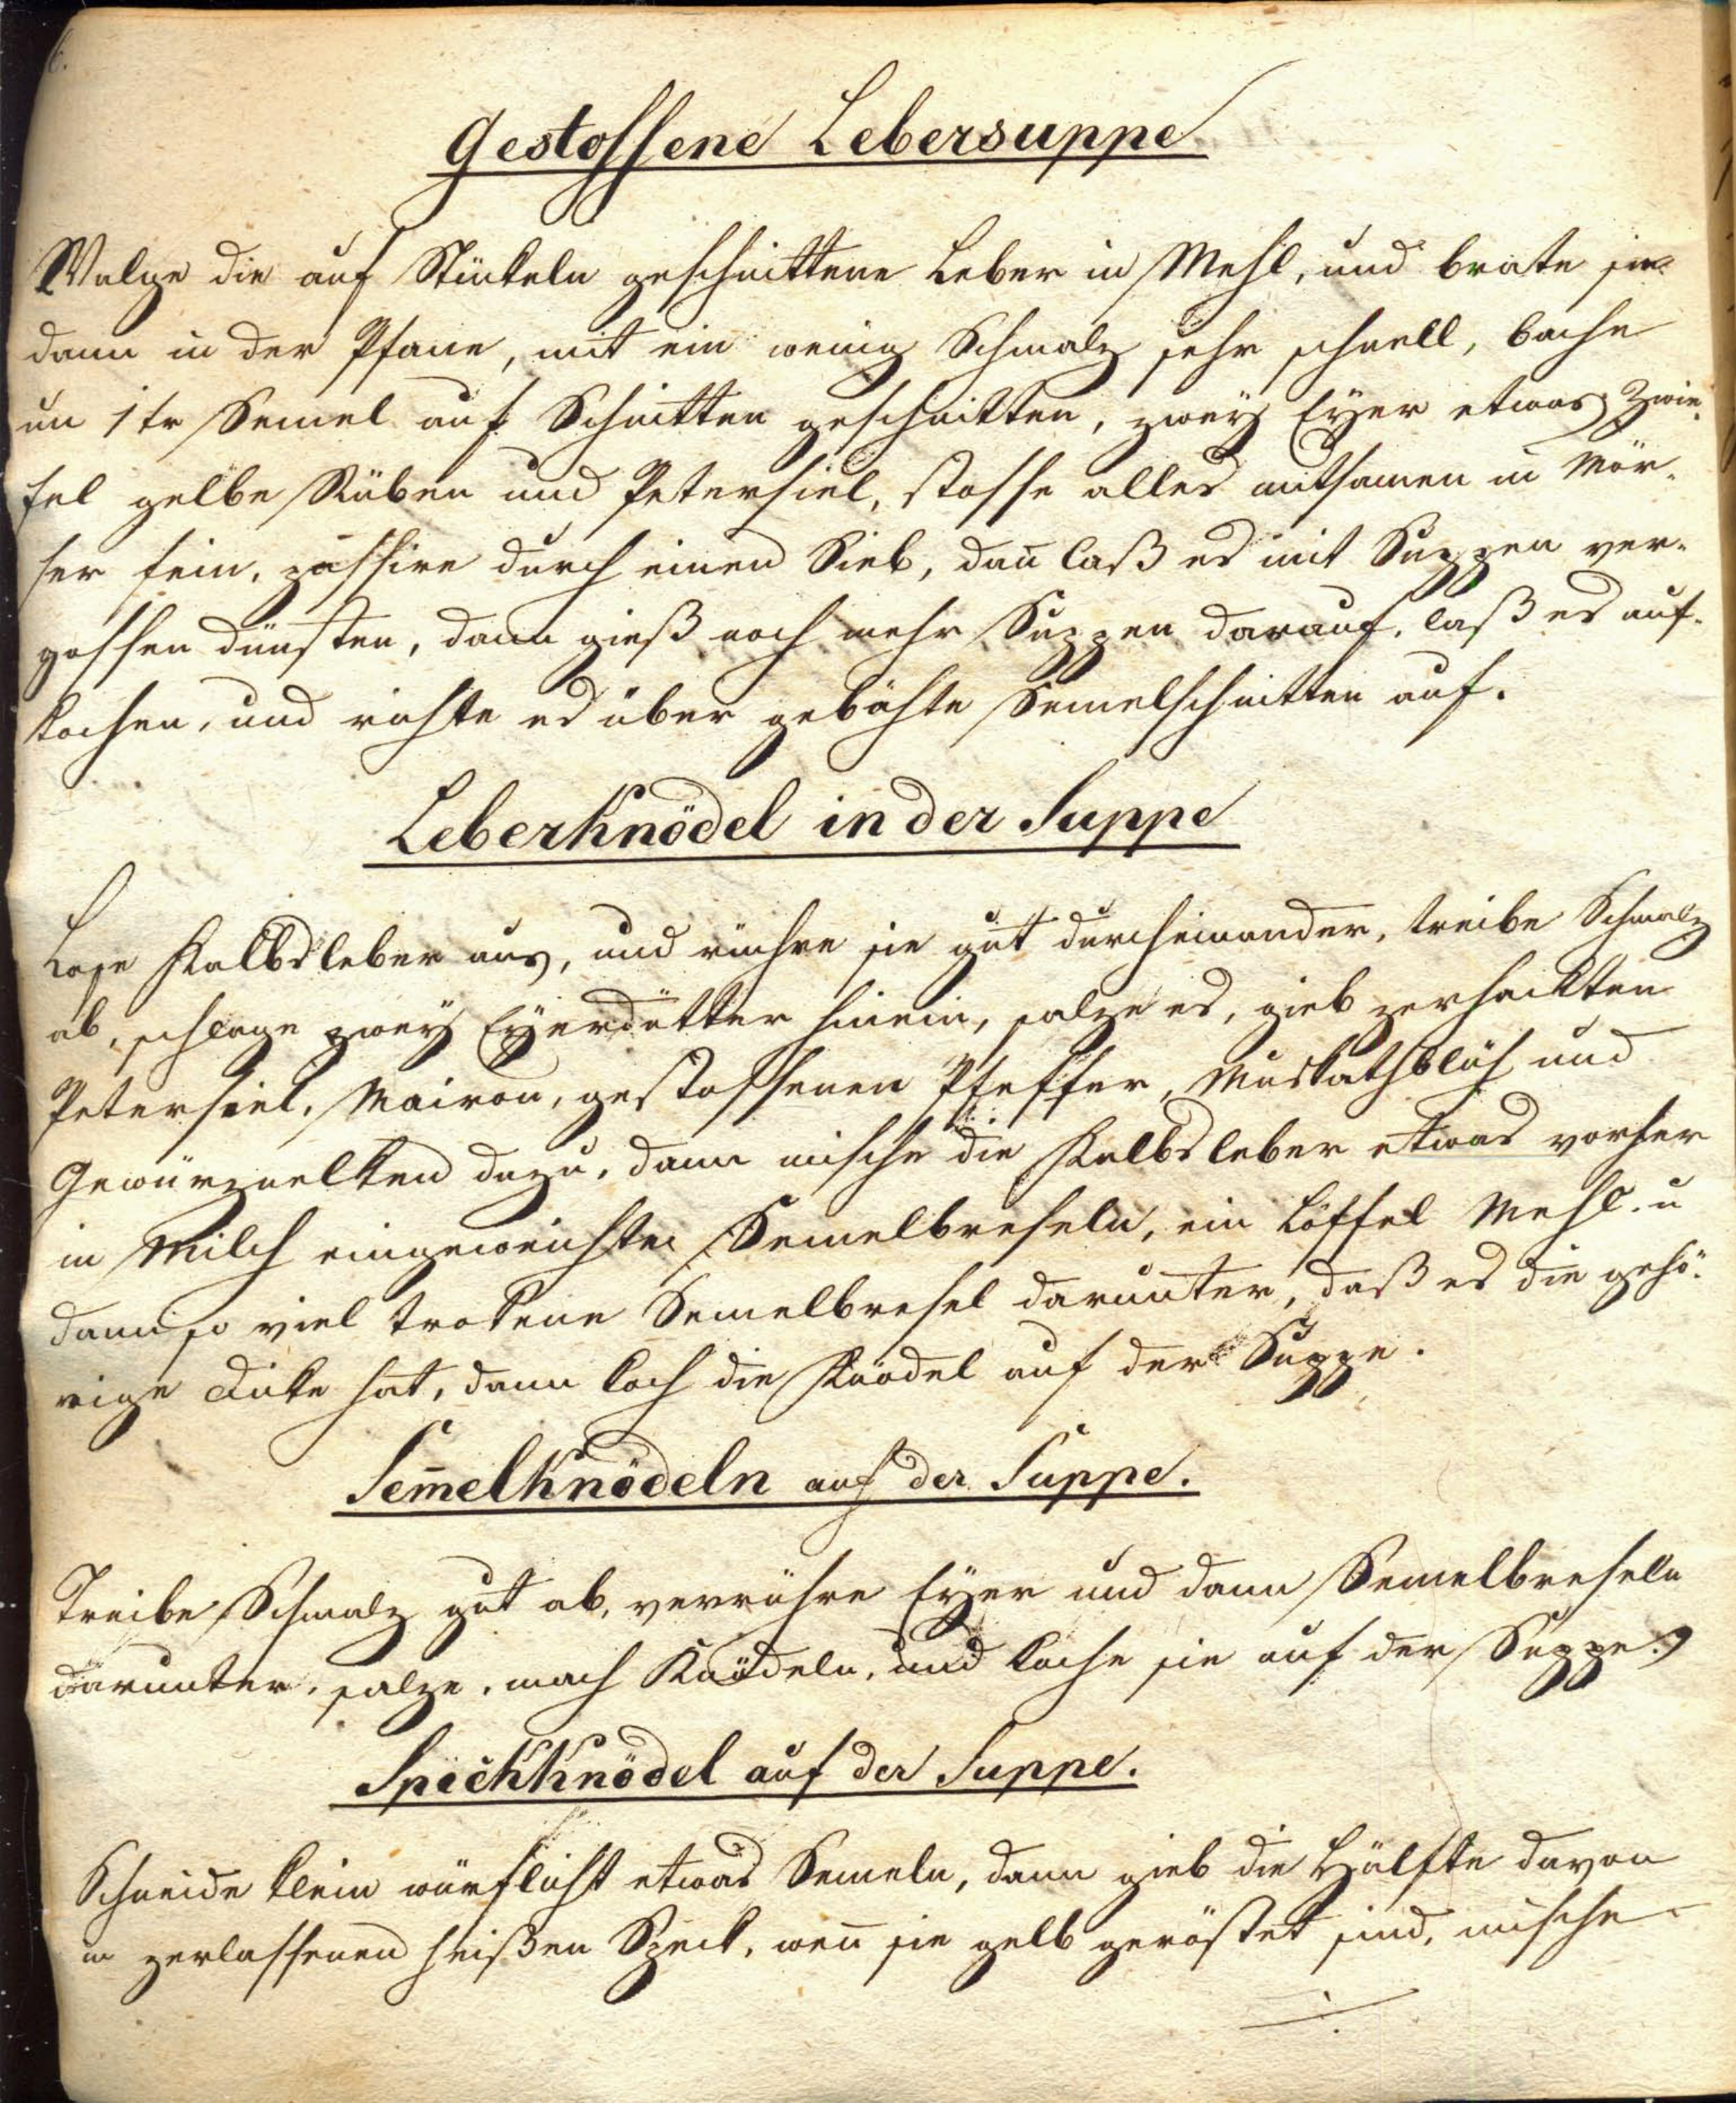 6.
Gestossene Lebersuppe
Walge die auf Stükeln geschnittene Leber in Mehl, und brate sie
dann in der Pfane, mit ein wenig Schmalz sehr schnell, bache
um 1 kr Semel auf Schnitten geschnitten, zweÿ Eÿer etwas Zwie-
fel gelbe Rüben und Petersiel, stosse alles mitsamen in Mör-
ser fein, passire durch einen Sieb, dañ laß es mit Suppen ver-
gossen dünsten, dann gieß noch mehr Suppen darauf, laß es auf-
kochen, und richte es über gebähte Semelschnitten auf.
Leberknödel in der Suppe
Kalbsleber aus, und rühre sie gut durcheinander, treibe Schmalz
ab, schlage zweÿ Eÿerdötter hinein, salze es, gieb zerhackten
Petersiel, Mairon, gestossenen Pfeffer, Muskathblüh und
Gewürznelken dazu, dann mische die Kalbsleber etwas vorher
in Milch eingeweichte Semelbreseln, ein Löffel Mehl u
dann so viel trokene Semelbresel darunter, daß es die gehö-
rige Dike hat, dann koch die Knödel auf der Suppe.
Sem̄elknödeln auf der Suppe.
Treibe Schmalz gut ab, verrühre Eÿer und dann Semelbreseln
darunter, salze, mach Knödeln, und koche sie auf der Suppe.
Speckknödel auf der Suppe.
Schneide klein würflicht etwas Semeln, dann gieb die Hälfte davon
in zerlassenen heißen Speck, weñ sie gelb geröstet sind, mische